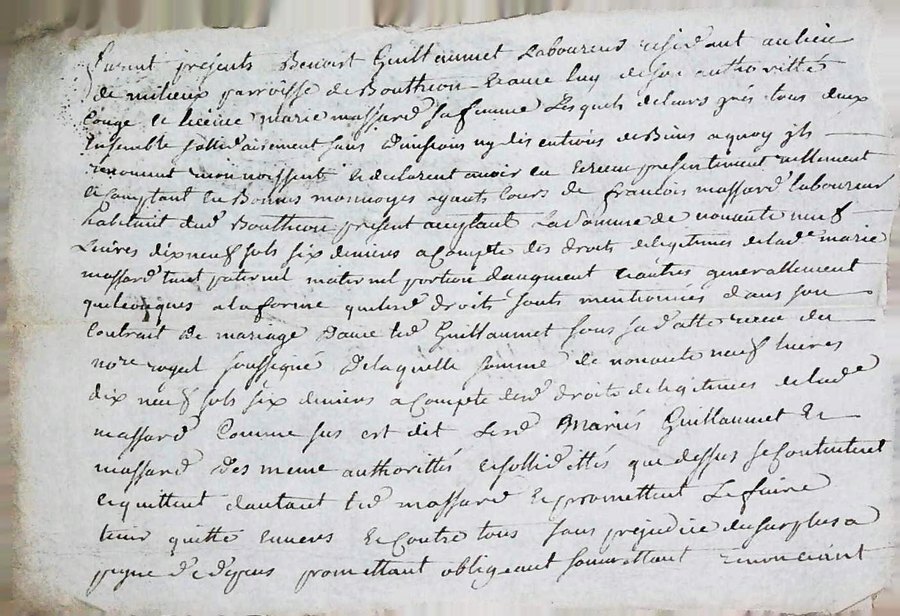 furent présents Benoist Guillaumet Laboureur résidant au lieu
de milieux parroisse de Bouthéon Et avec luy de son authorittés
Congé et licence marie massard sa femme Lesquels de leurs grés tous deux
Ensemble sollidairement sans divisions ny discutions de Biens a quoy ils
renoncent Et declarent avoir eu Et receu présentement reellement
Et Comptant En Bonnes monnoyes ayants Cours de françois massard laboureur
habitant dud Bouthéon présent acceptant La somme de nonante neuf
Livres dix neuf sols six deniers a Compte des droits de legitimes de lad marie
massard tant paternel maternel portion daugment Et autres generallement
quelconques a la forme que lesd droits sonts mentionnés dans son
Contrait de mariage Davec led Guillaumet sous sa datte receu du
nore royal soussigné De laquelle somme de nonante neuf livres
dix neuf sols six deniers a Compte desd droits de legitimes de lade
massard Comme sus est dit Lesd Mariés Guillaumet Et
massard des meme authorittés Et sollidittés que dessus se Contentent
Et quittent dautant led massard Et promettent Le faire
tenir quitte Envers Et Contre tous sans préjudice du surplus a
peyne de depens promettant obligeant soumettant renonceant